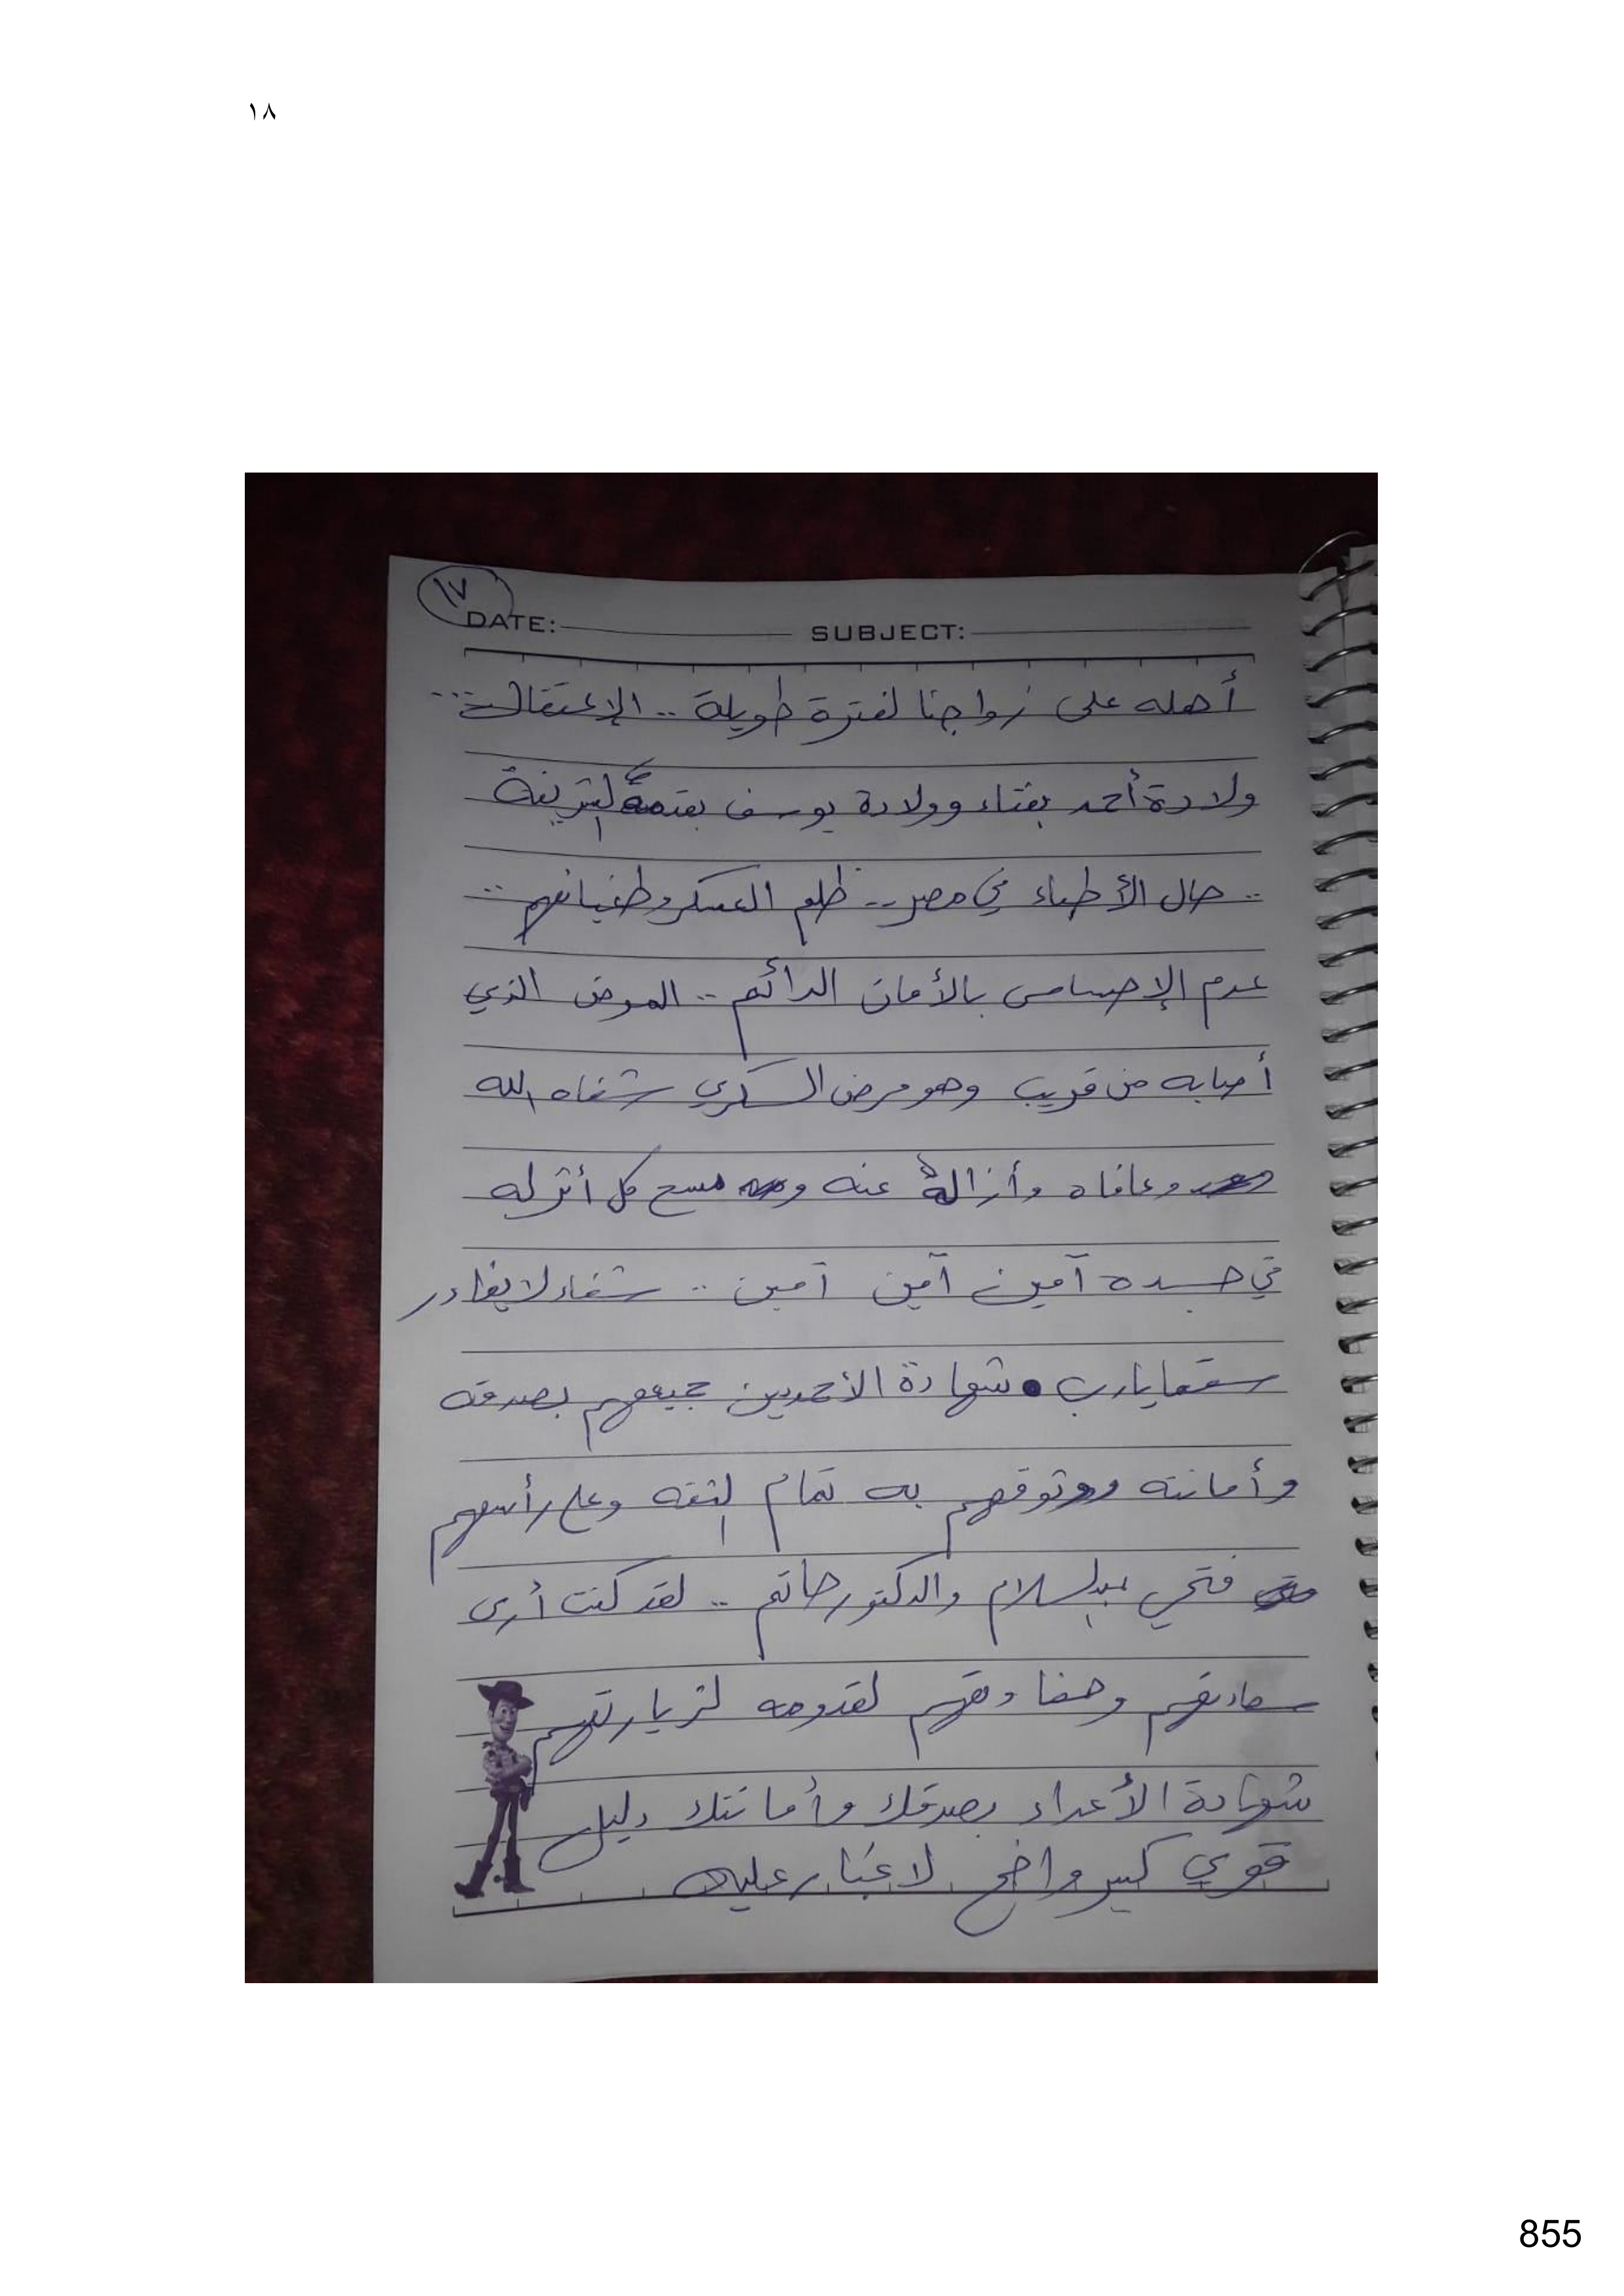 ١٨
١٧
DATE: SUBJECT:
أهله على زواجنا لفترة طويلة .. الإعتقالات ...
ولادة أحمد بفتاء وولادة يوسف بقدمه
.. حال الأطباء في مصر .. ظلم العسكر وطغيانهم ..
عدم الإحساس بالأمان الدائم .. المرض الذي
أصابه من قريب وهو مرض السكري شفاه الله
وعافاه وأزاله عنه ومسح كل أثر له
في جسده آمين آمين آمين .. شفاء لا يغادر
سقما يارب . شهادة الأحمديين جميعهم بصدقه
وأمانته ووثوقهم به تمام الثقه وعلى رأسهم
فتحي عبدالسلام والدكتور حاتم .. لقد كنت أرى
سعادتهم وحفاوتهم لقدومه لزيارتهم
شهادة الأعداء بصدقك وأمانتك دليل
قوي كبير واضح لا غبار عليه
855